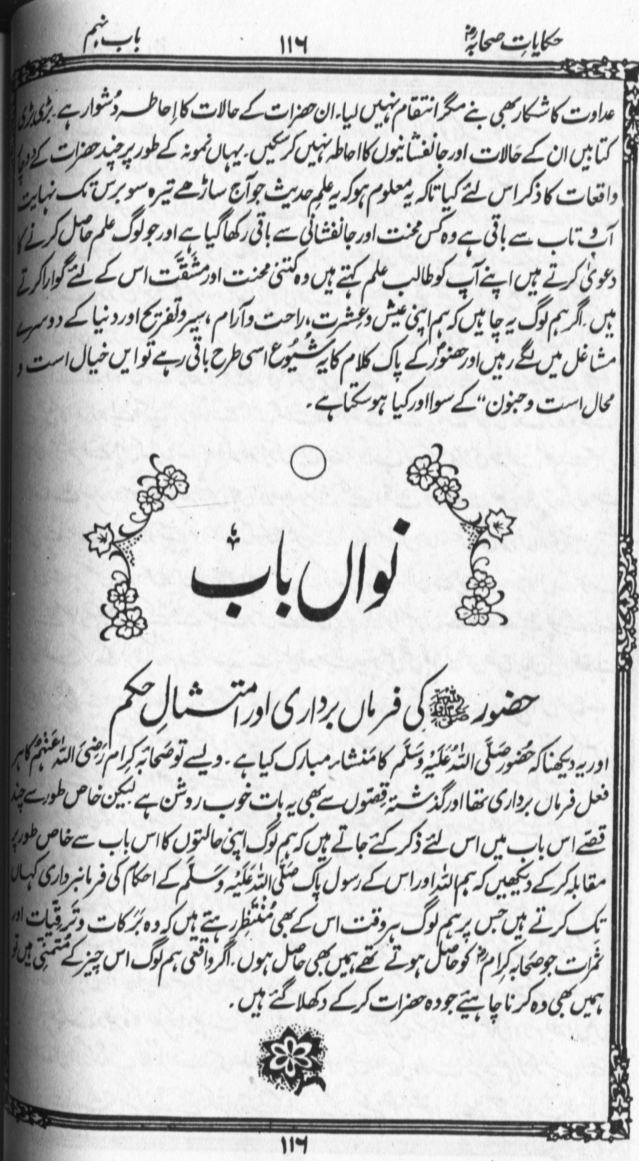 حکایاتِ صحابہؓ
۱۱۶
باب نہم
عداوت کا شکار بھی بنے مگر انتقام نہیں لیا۔ ان حضرات کے حالات کا اِحاطہ دُشوار ہے۔ بڑی بڑی
کتابیں ان کے حالات اور جانفشانیوں کا احاطہ نہیں کر سکیں۔ یہاں نمونہ کے طور پر چند حضرات کے دو چار
واقعات کا ذکر اس لئے کیا تاکہ یہ معلوم ہو کہ یہ علم حدیث جو آج ساڑھے تیرہ سو برس تک نہایت
آب و تاب سے باقی ہے وہ کس محنت اور جانفشانی سے باقی رکھا گیا ہے اور جو لوگ علم حاصل کرنے کا
دعویٰ کرتے ہیں اپنے آپ کو طالب علم کہتے ہیں وہ کتنی محنت اور مَشَقَّت اس کے لئے گوارا کرتے
ہیں۔ اگر ہم لوگ یہ چاہیں کہ ہم اپنی عیش و عشرت، راحت و آرام، سیر و تفریح اور دنیا کے دوسرے
مشاغل میں لگے رہیں اور حضورؐ کے پاک کلام کا یہ شُیُوع اسی طرح باقی رہے تو ایں خیال است و
محال است و جنون“ کے سوا اور کیا ہو سکتا ہے۔
نواں باب
حضور ﷺ کی فرماں برداری اور امتثالِ حکم
اور یہ دیکھنا کہ حُضور صَلَّی اللہُ عَلَیْہِ وَسَلَّم کا مَنشاء مبارک کیا ہے۔ ویسے تو صَحابۂ کرام رَضِیَ اللہُ عَنْہُم کا ہر
فعل فرماں برداری تھا اور گذشتہ قِصّوں سے بھی یہ بات خوب روشن ہے لیکن خاص طور سے چند
قصّے اس باب میں اس لئے ذکر کئے جاتے ہیں کہ ہم لوگ اپنی حالتوں کا اس باب سے خاص طور پر
مقابلہ کر کے دیکھیں کہ ہم اللہ اور اس کے رسول پاک صَلَّی اللہُ عَلَیْہِ وَسَلَّم کے احکام کی فرمانبرداری کہاں
تک کرتے ہیں جس پر ہم لوگ ہر وقت اس کے بھی مُنتظِر رہتے ہیں کہ وہ بَرَکات و تَرقیات اور
ثَمَرات جو صحابہ کرامؓ کو حاصل ہوتے تھے ہمیں بھی حاصل ہوں۔ اگر واقعی ہم لوگ اس چیز کے مُتَمنّی ہیں تو
ہمیں بھی وہ کرنا چاہیئے جو وہ حضرات کر کے دکھلا گئے ہیں۔
۱۱۶